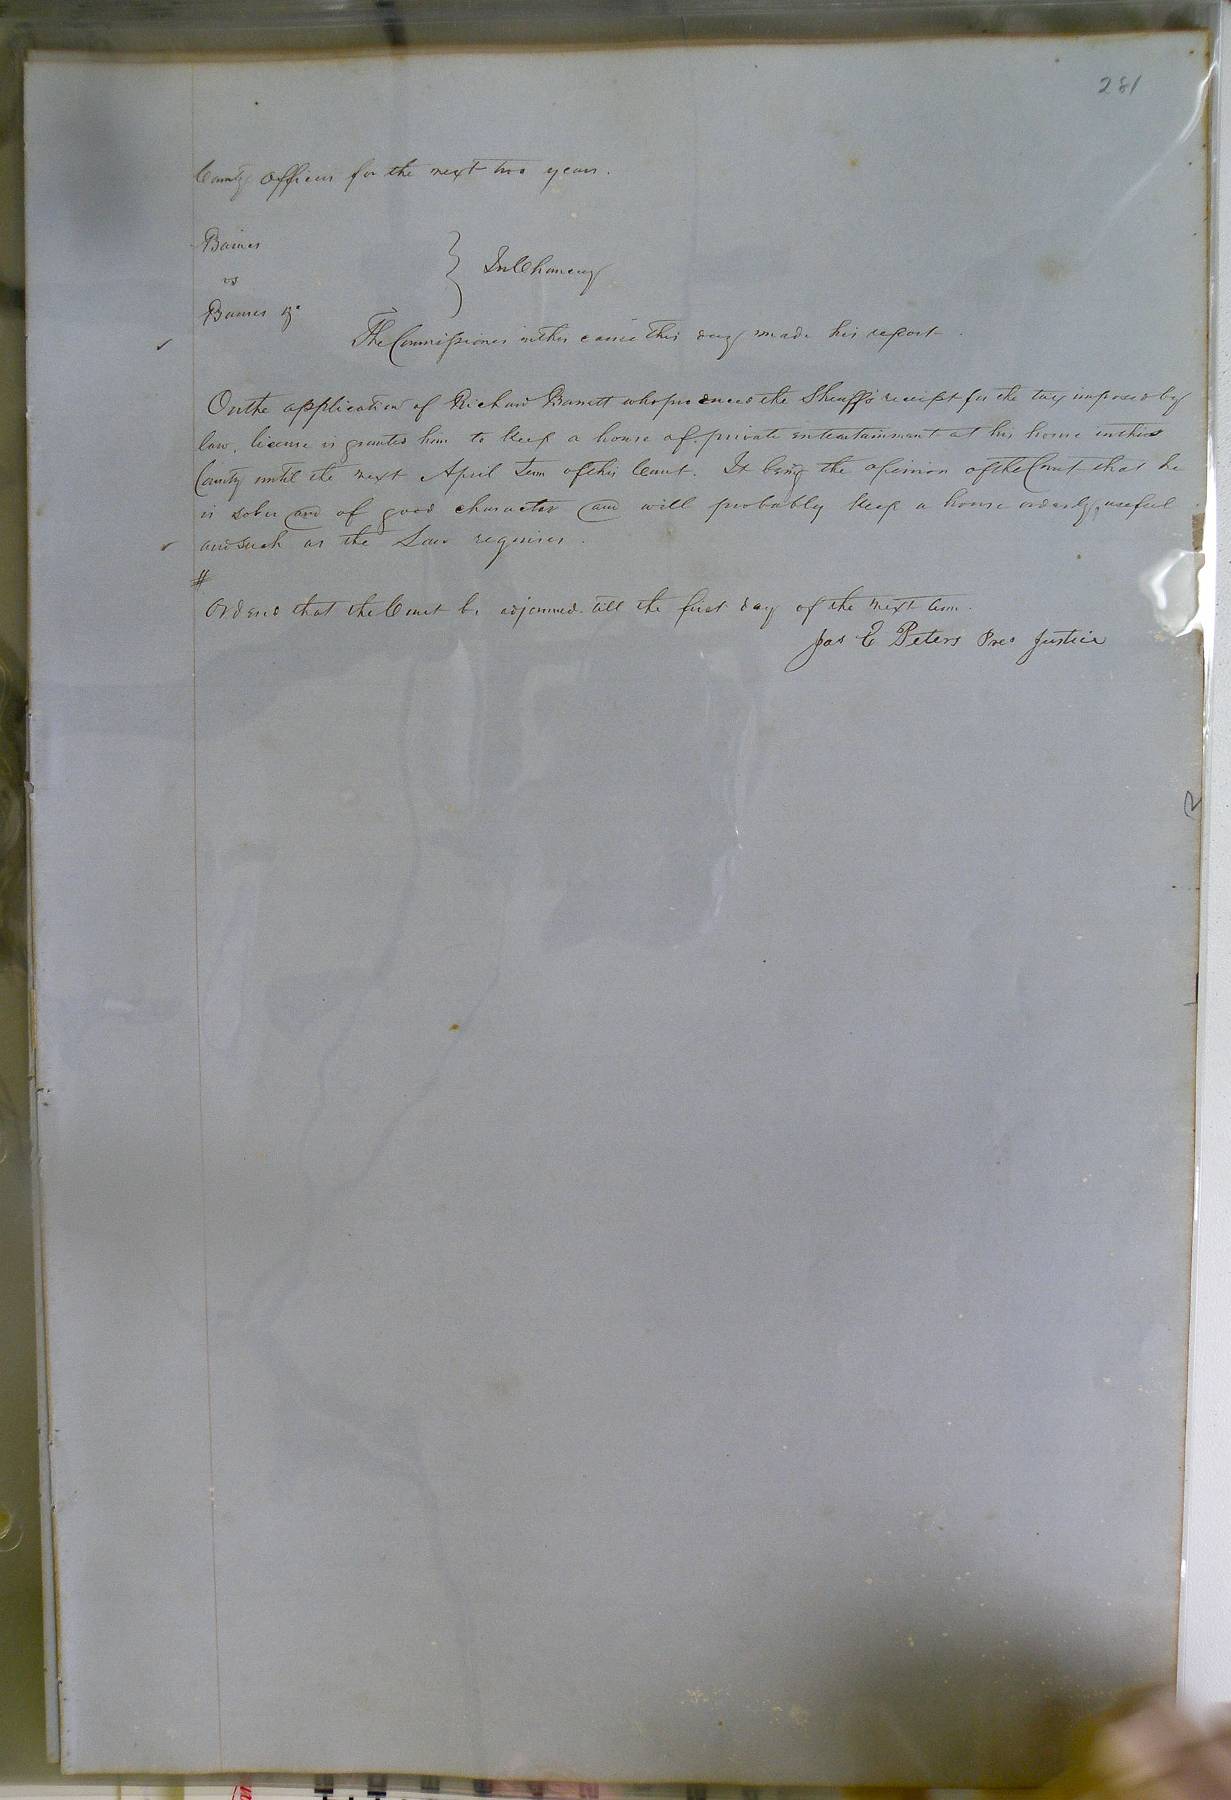 281
County officers for the next two years.
Barnes
vs
Barnes &c
} In Chancery
The Commissioner in this cause this day made his report.
On the application of Richard Barrett who produced the Sheriff's receipt for the tax imposed by
law, license is granted him to keep a house of private entertainment at his house in this
County until the next April Term of this Court. It being the opinion of the Court that he
is sober and of good character and will probably keep a house orderly, useful
and such as the Law requires.
#
Ordered that the Court be adjourned till the first day of the next term.
Jas E Peters Pres Justice